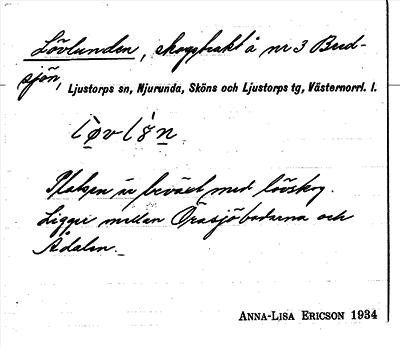 Lövlunden, skogstrakt å nr 3 Bred-
sjön, Ljustorps sn, Njurunda, Sköns och Ljustorps tg, Västernorrl. l.
Platsen är beväxt med lövskog.
Ligger mellan Öråsjöbodarna och
Ådalen.
ANNA-LISA ERICSON 1934